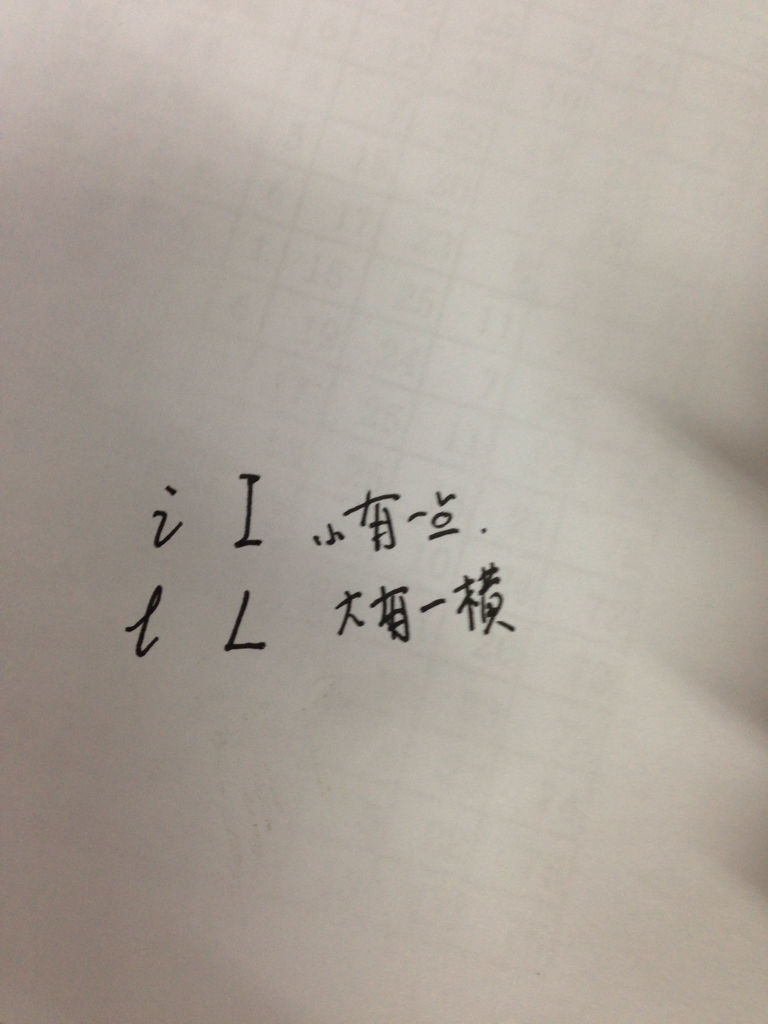 i I 小有一点.
l L 大有一横